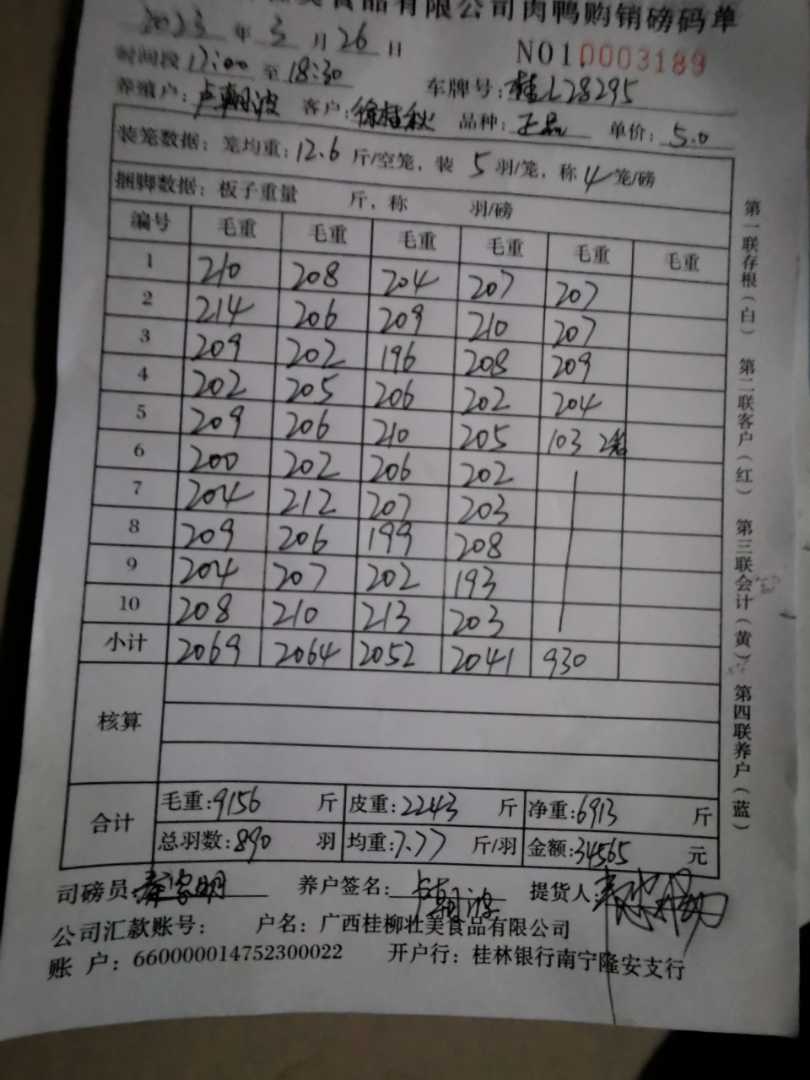 美食品有限公司肉鸭购销磅码单
2023 年 3 月 26 日 NO10003189
时间段 17:00 至 18:30 车牌号:桂L28295
养殖户: 卢朝波 客户: 徐桂秋 品种: 正品 单价: 5.0
装笼数据: 笼均重: 12.6 斤/空笼, 装 5 羽/笼, 称 4 笼/磅
捆脚数据: 板子重量 斤, 称 羽/磅
编号 毛重 毛重 毛重 毛重 毛重 毛重
1 210 208 204 207 207
2 214 206 209 210 207
3 209 202 196 208 209
4 202 205 206 202 204
5 209 206 210 205 103 2笼
6 200 202 206 202
7 204 212 207 203
8 209 206 199 208
9 204 207 202 193
10 208 210 213 203
小计 2069 2064 2052 2041 930
核算
合计 毛重:9156 斤 皮重:2243 斤 净重:6913 斤
总羽数:890 羽 均重:7.77 斤/羽 金额:34565 元
司磅员: 养户签名: 卢朝波 提货人:
公司汇款账号: 户名: 广西桂柳壮美食品有限公司
账 户: 660000014752300022 开户行: 桂林银行南宁隆安支行
第一联存根(白) 第二联客户(红) 第三联会计(黄) 第四联养户(蓝)